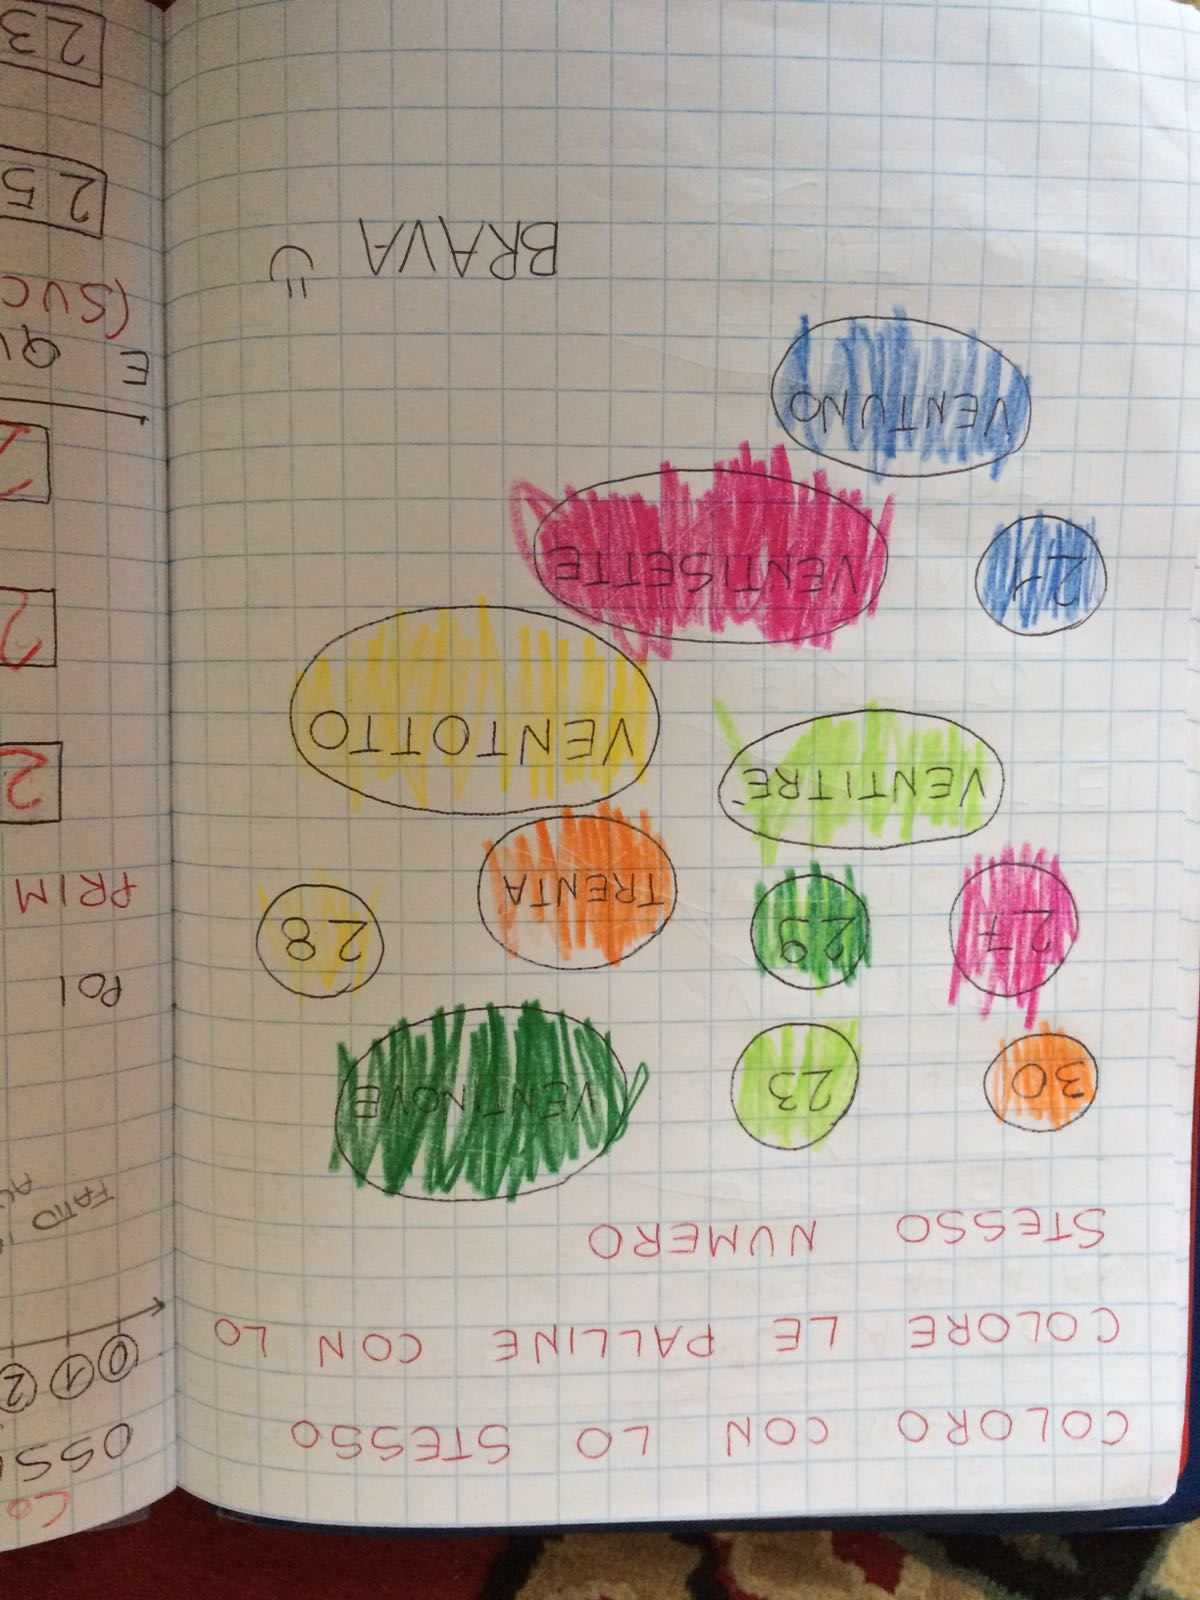 COLORO CON LO STESSO
COLORE LE PALLINE CON LO
STESSO NUMERO
30
23
VENTINOVE
27
29
TRENTA
28
VENTITRÈ
VENTOTTO
21
VENTISETTE
VENTUNO
BRAVA
0 1 2
POI
PRIM
2
2
E QU
(SUC
25
23